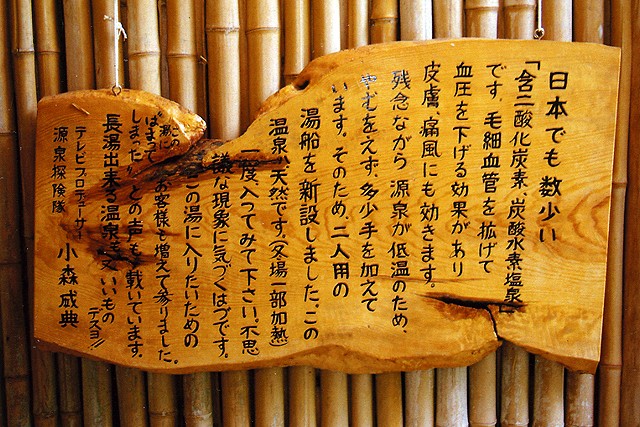 日本でも数少い
「含二酸化炭素、炭酸水素塩泉」
です。毛細血管を拡げて
血圧を下げる効果があり
皮膚、痛風にも効きます。
残念ながら源泉が低温のため、
やむをえず、多少手を加えて
います。そのため、二人用の
湯船を新設しました。この
温泉は天然です。(冬場一部加熱)
一度、入ってみて下さい。不思
議な現象に気づくはづです。
この湯に入りたいための
お客様も増えて参りました。
“この湯に
はまって
しまった”との声も戴いています。
長湯出来る温泉も又いいもの
デスヨ!!
テレビプロデューサー
源泉探険隊 小森威典